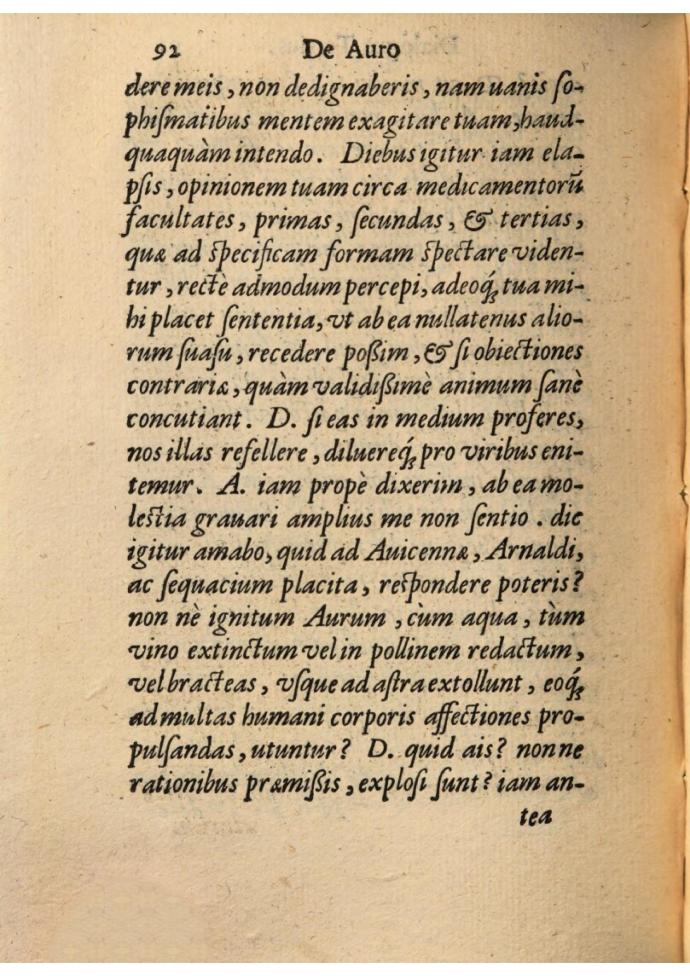 92 De Auro
dere meis, non dedignaberis, nam uanis ſo-
phiſmatibus mentem exagitare tuam, haud-
quaquàm intendo. Diebus igitur iam ela-
pſis, opinionem tuam circa medicamentorū
facultates, primas, ſecundas, & tertias,
quæ ad ſpecificam formam ſpectare viden-
tur, rectè admodum percepi, adeoq́; tua mi-
hi placet ſententia, vt ab ea nullatenus alio-
rum ſuaſu, recedere poßim, & ſi obiectiones
contrariæ, quàm validißimè animum ſanè
concutiant. D. ſi eas in medium proferes,
nos illas refellere, diluereq́; pro viribus eni-
temur. A. iam propè dixerim, ab ea mo-
leſtia grauari amplius me non ſentio. dic
igitur amabo, quid ad Auicennæ, Arnaldi,
ac ſequacium placita, reſpondere poteris?
non nè ignitum Aurum, cùm aqua, tùm
vino extinctum vel in pollinem redactum,
vel bracteas, vſque ad aſtra extollunt, eoq́;
ad multas humani corporis affectiones pro-
pulſandas, utuntur? D. quid ais? nonne
rationibus præmißis, exploſi ſunt? iam an-
tea